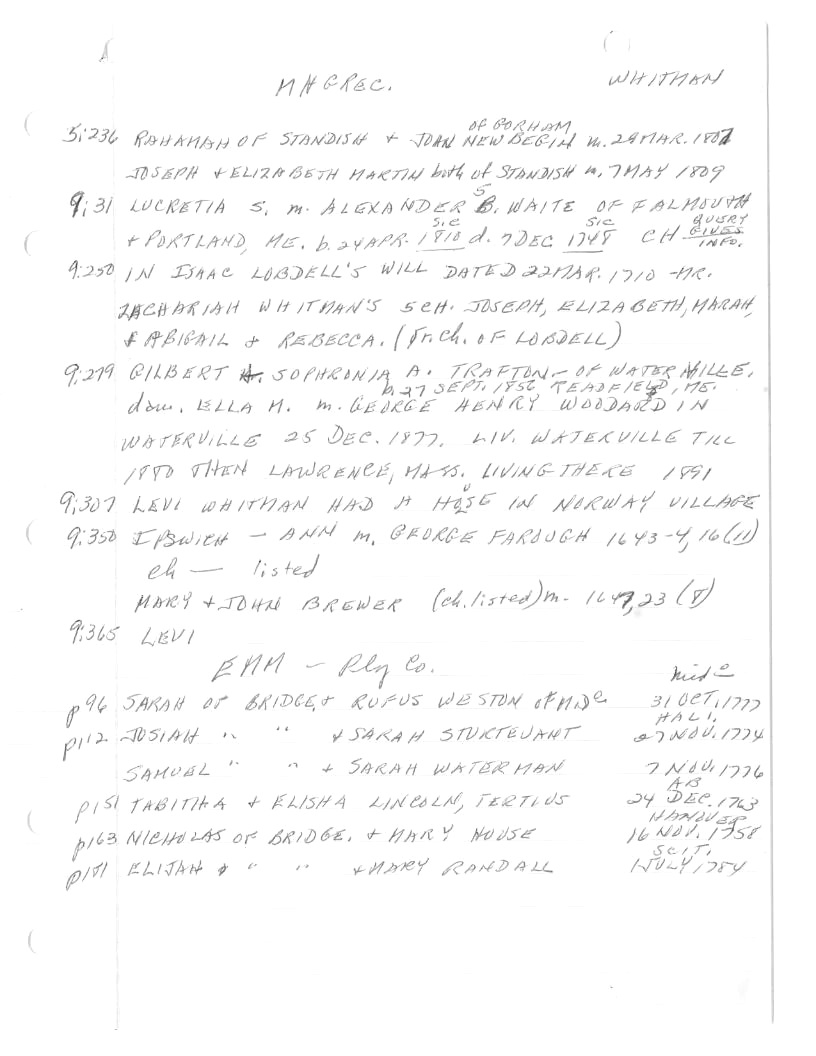 MHGREC. WHITMAN
OF GORHAM
5:236 RAHAMAH OF STANDISH + JOHN NEWBEGIN m. 29 MAR. 1807
JOSEPH + ELIZABETH MARTIN both of STANDISH m. 7 MAY 1809
S
9:31 LUCRETIA S. m. ALEXANDER B. WAITE OF FALMOUTH
SIC SIC QUERY
+ PORTLAND, ME. b. 24 APR. 1810 d. 7 DEC 1748 CH GIVES
INFO.
9:250 IN ISAAC LOBDELL'S WILL DATED 22 MAR. 1710 - MR.
ZACHARIAH WHITMAN'S 5 CH. JOSEPH, ELIZABETH, MARAH,
+ ABIGAIL + REBECCA. (Gr.ch. OF LOBDELL)
9:279 GILBERT H. SOPHRONIA A. TRAFTON - OF WATERVILLE.
b. 27 SEPT. 1856 READFIELD, ME.
dau. ELLA M. m. GEORGE HENRY WOODARD IN
WATERVILLE 25 DEC. 1877. LIV. WATERVILLE TILL
1880 THEN LAWRENCE, MASS. LIVING THERE 1891
9:307 LEVI WHITMAN HAD A HOUSE IN NORWAY VILLAGE
9:350 IPSWICH - ANN m. GEORGE FAROUGH 1643-4, 16 (11)
ch — listed
MARY + JOHN BREWER (ch. listed) m - 1647, 23 (8)
9:365 LEVI
EMM - Ply Co.
Midᵒ
p96 SARAH OF BRIDGE. + RUFUS WESTON of MIDᵒ 31 OCT. 1777
HALI.
p112 JOSIAH " " + SARAH STURTEVANT 27 NOV. 1774
SAMUEL " " + SARAH WATERMAN 7 NOV. 1776
AB
p151 TABITHA + ELISHA LINCOLN, TERTIUS 24 DEC. 1763
HANOVER
p163 NICHOLAS OF BRIDGE. + MARY HOUSE 16 NOV. 1758
SCIT.
p181 ELIJAH + " " + MARY RANDALL 1 JULY 1784